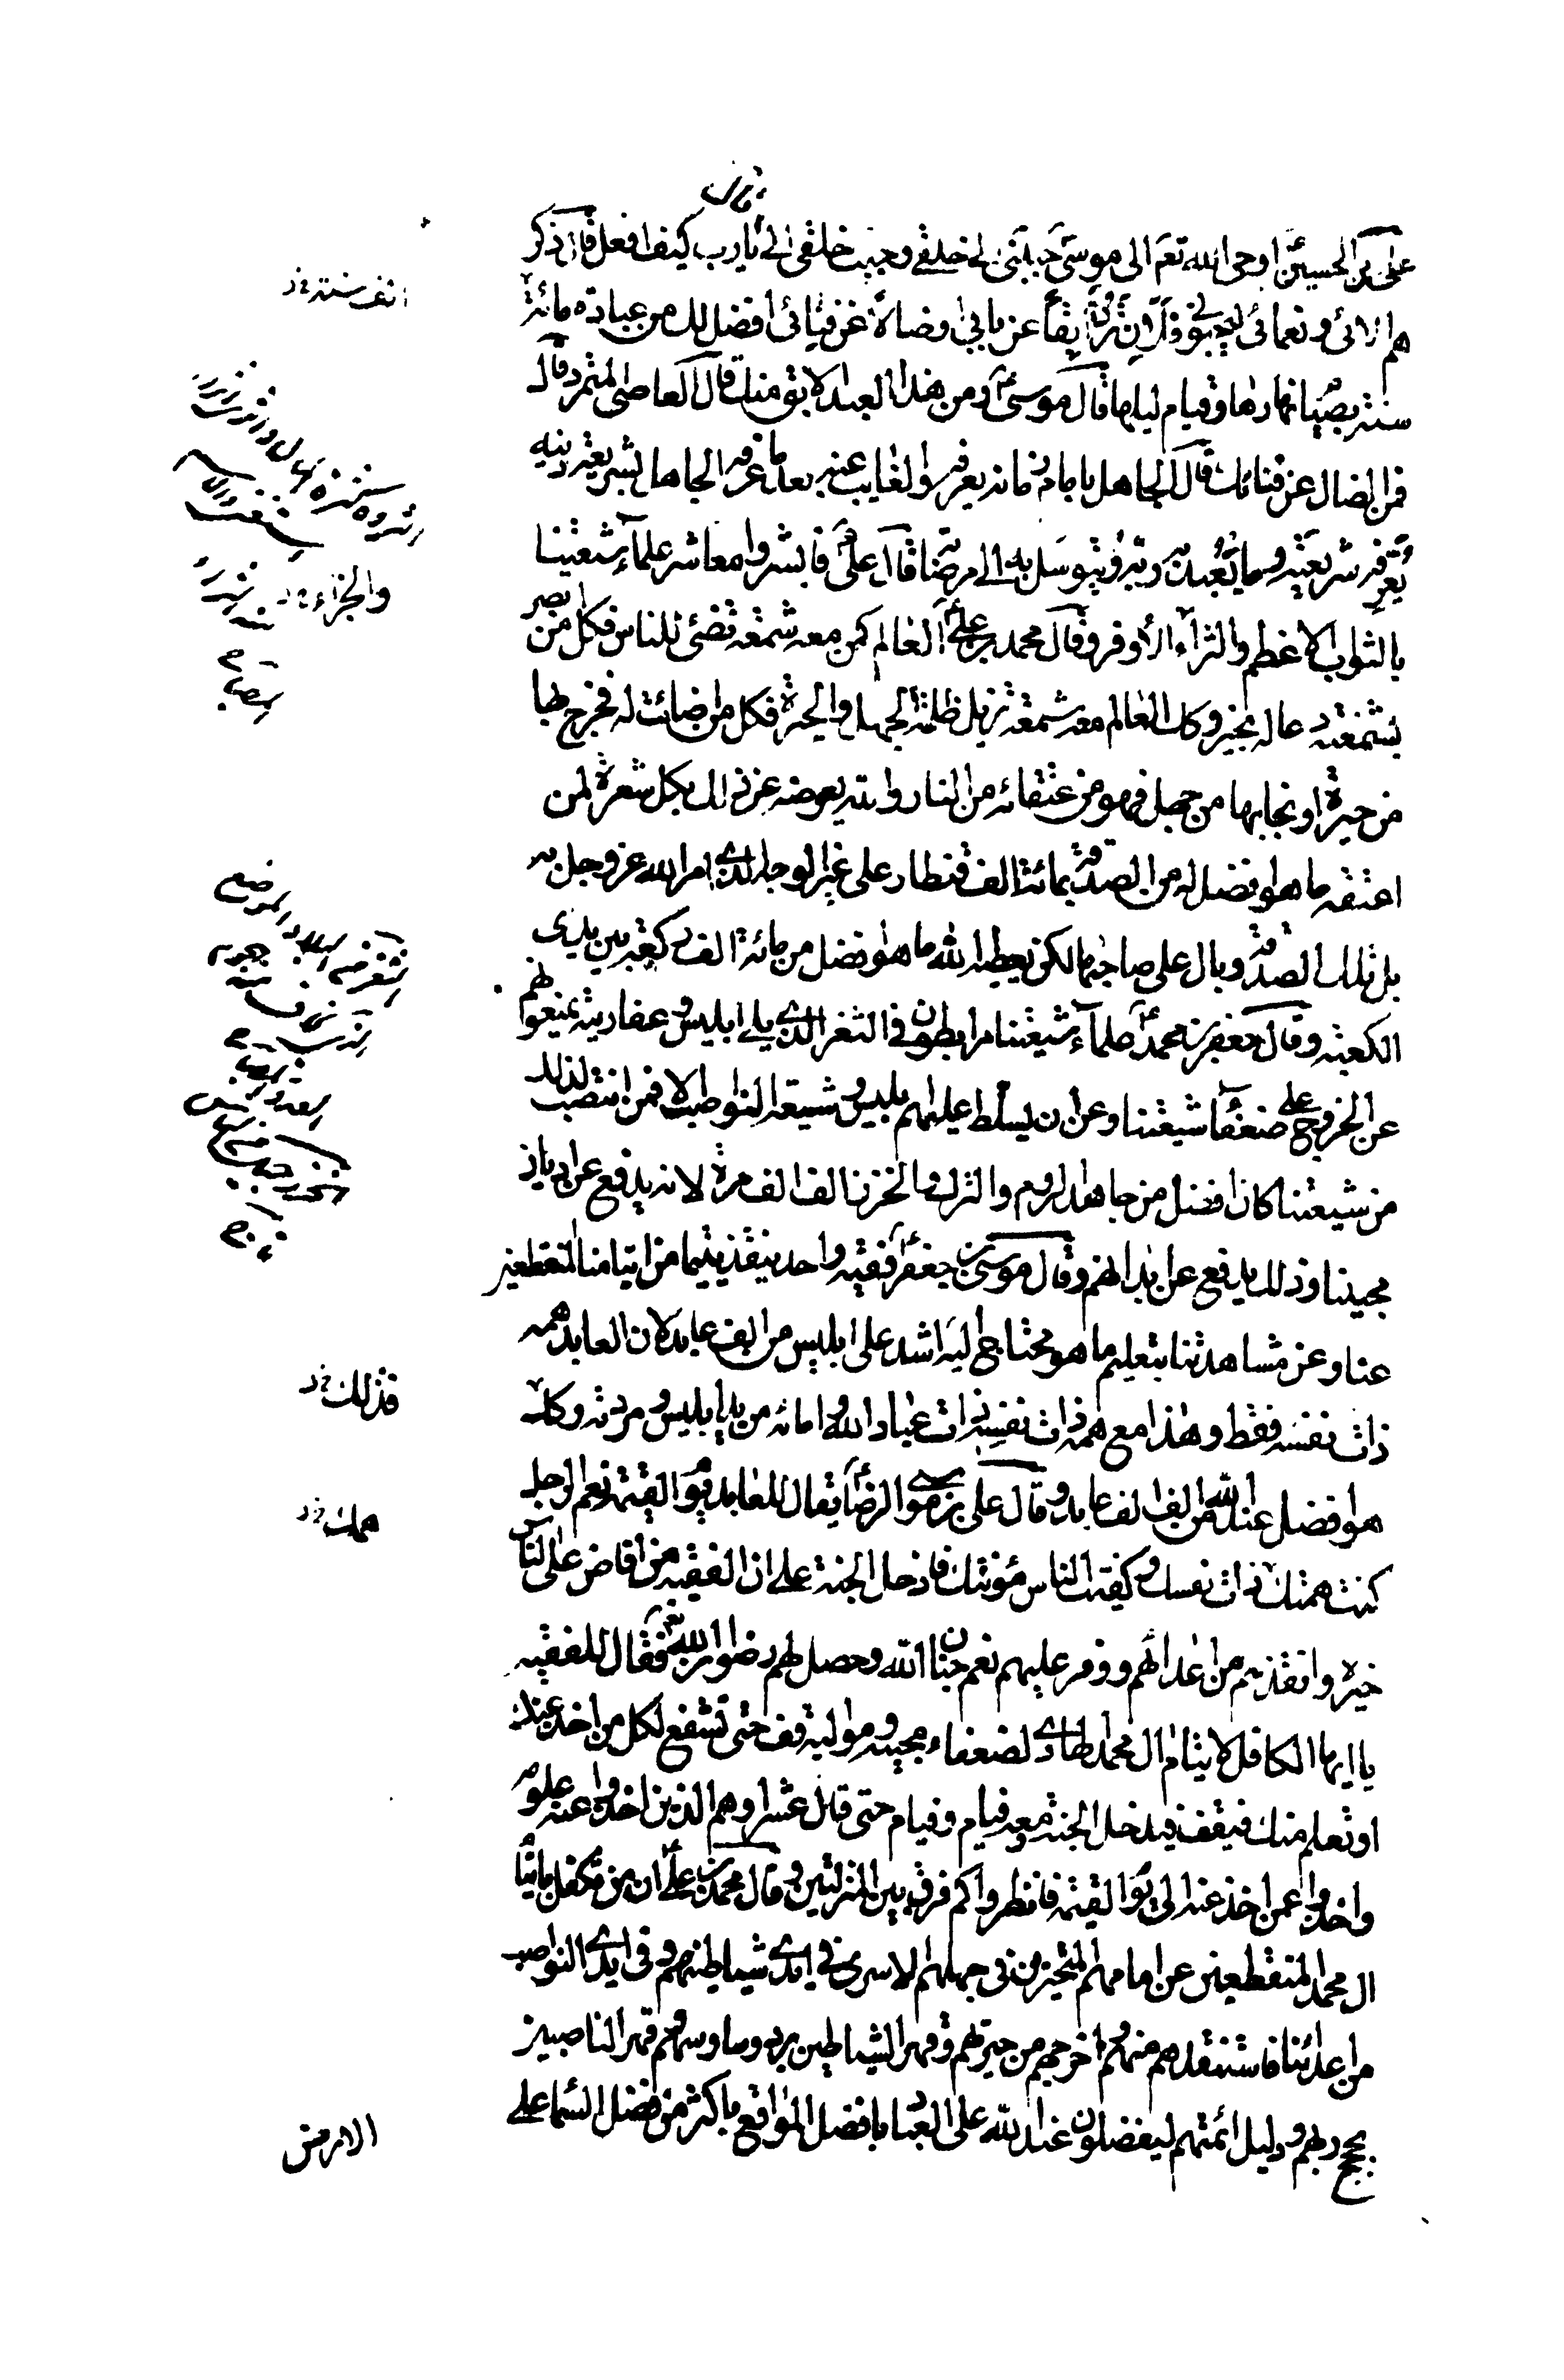 قال
علی بن الحسین اوحی الله تعم الی موسی حببنی الی خلقی وحبب خلقی الی قال یارب کیف افعل قال ذکر
هم الائی ونعمائی لیحبونی فلان ترد ابقا عن بابی او ضالا عن فنائی افضل لك من عبادة مائة
سنة بصیام نهارها وقیام لیلها قال موسی ومن هذا العبد الابق منك قال العاصی المتمرد قال
فمن الضال عن فنائك قال الجاهل بامام زمانه یعرفه والغایب عنه بعد ما عرفه الجاهل بشریعة دینه
یعرفه شریعته وما یعبد به ربه ویتوسل به الی مرضاته قال علی فابشروا معاشر علمآء شیعتنا
بالثواب الاعظم والجزآء الاوفر وقال محمد بن علی العالم کمن معه شمعة تضئ للناس فکل من ابصر
بشمعته دعا له بخیر وکذلك العالم معه شمعة تزیل ظلمة الجهل والحیرة فکل من اضائت له فخرج بها
من حیرة او نجا بها من جهل فهو من عتقائه من النار والله یعوضه عن ذلك بکل شعرة لمن
اعتقه ما هو افضل له من الصدقة بمائة الف قنطار علی غیر الوجه الذی امر الله عز وجل به
بل تلك الصدقة وبال علی صاحبها لکن یعطیه الله ما هو افضل من مائة الف رکعة بین یدی
الکعبة وقال جعفر بن محمد علمآء شیعتنا مرابطون فی الثغر الذی یلی ابلیس وعفاریته یمنعونهم
عن الخروج علی ضعفآء شیعتنا وعن ان یسلط علیهم ابلیس وشیعته النواصب الا فمن انتصب لذلك
من شیعتنا کان افضل ممن جاهد الروم والترك والخزر الف الف مرة لانه یدفع عن ادیان
محبینا وذلك یدفع عن ابدانهم وقال موسی بن جعفر فقیه واحد ینقذ یتیما من ایتامنا المنقطعین
عنا وعن مشاهدتنا بتعلیم ما هو محتاج الیه اشد علی ابلیس من الف عابد لان العابد همه
ذات نفسه فقط وهذا مع همه ذات نفسه ذات عباد الله وامائه من ید ابلیس ومردته وکك
هو افضل عند الله من الف الف عابد وقال علی بن موسی الرضا یقال للعابد یوم القیمة نعم الرجل
کنت همتك ذات نفسك وکفیت الناس مؤنتك فادخل الجنة علی ان الفقیه من افاض علی الناس
خیره وانقذهم من اعدائهم ووفر علیهم نعم جنان الله وحصل لهم رضوان الله تعم فقال للفقیه
یا ایها الکافل لایتام ال محمد الهادی لضعفاء محبیه وموالیه قف حتی تشفع لکل من اخذ عنك
او تعلم منك فیقف فیدخل الجنة ومعه فیام وفیام حتی قال عشرا وهم الذین اخذوا عنه علومه
واخذوا عمن اخذ عنه الی یوم القیمة فانظروا کم فرق بین المنزلتین وقال محمد بن علی ان من تکفل بایتام
ال محمد المنقطعین عن امامهم المتحیرین فی جهلهم الاسری فی ایدی شیاطینهم وفی ایدی النواصب
من اعدائنا فاستنقذهم منهم واخرجهم من حیرتهم وقهر الشیاطین برد وساوسهم وقهر الناصبین
بحجج ربهم ودلیل ائمتهم لیفضلون عند الله علی العباد بافضل المواقع باکثر من فضل السما علی
الارض
الف سنة خ د
والجزاء خ د
فذلك خ د
همك خ د